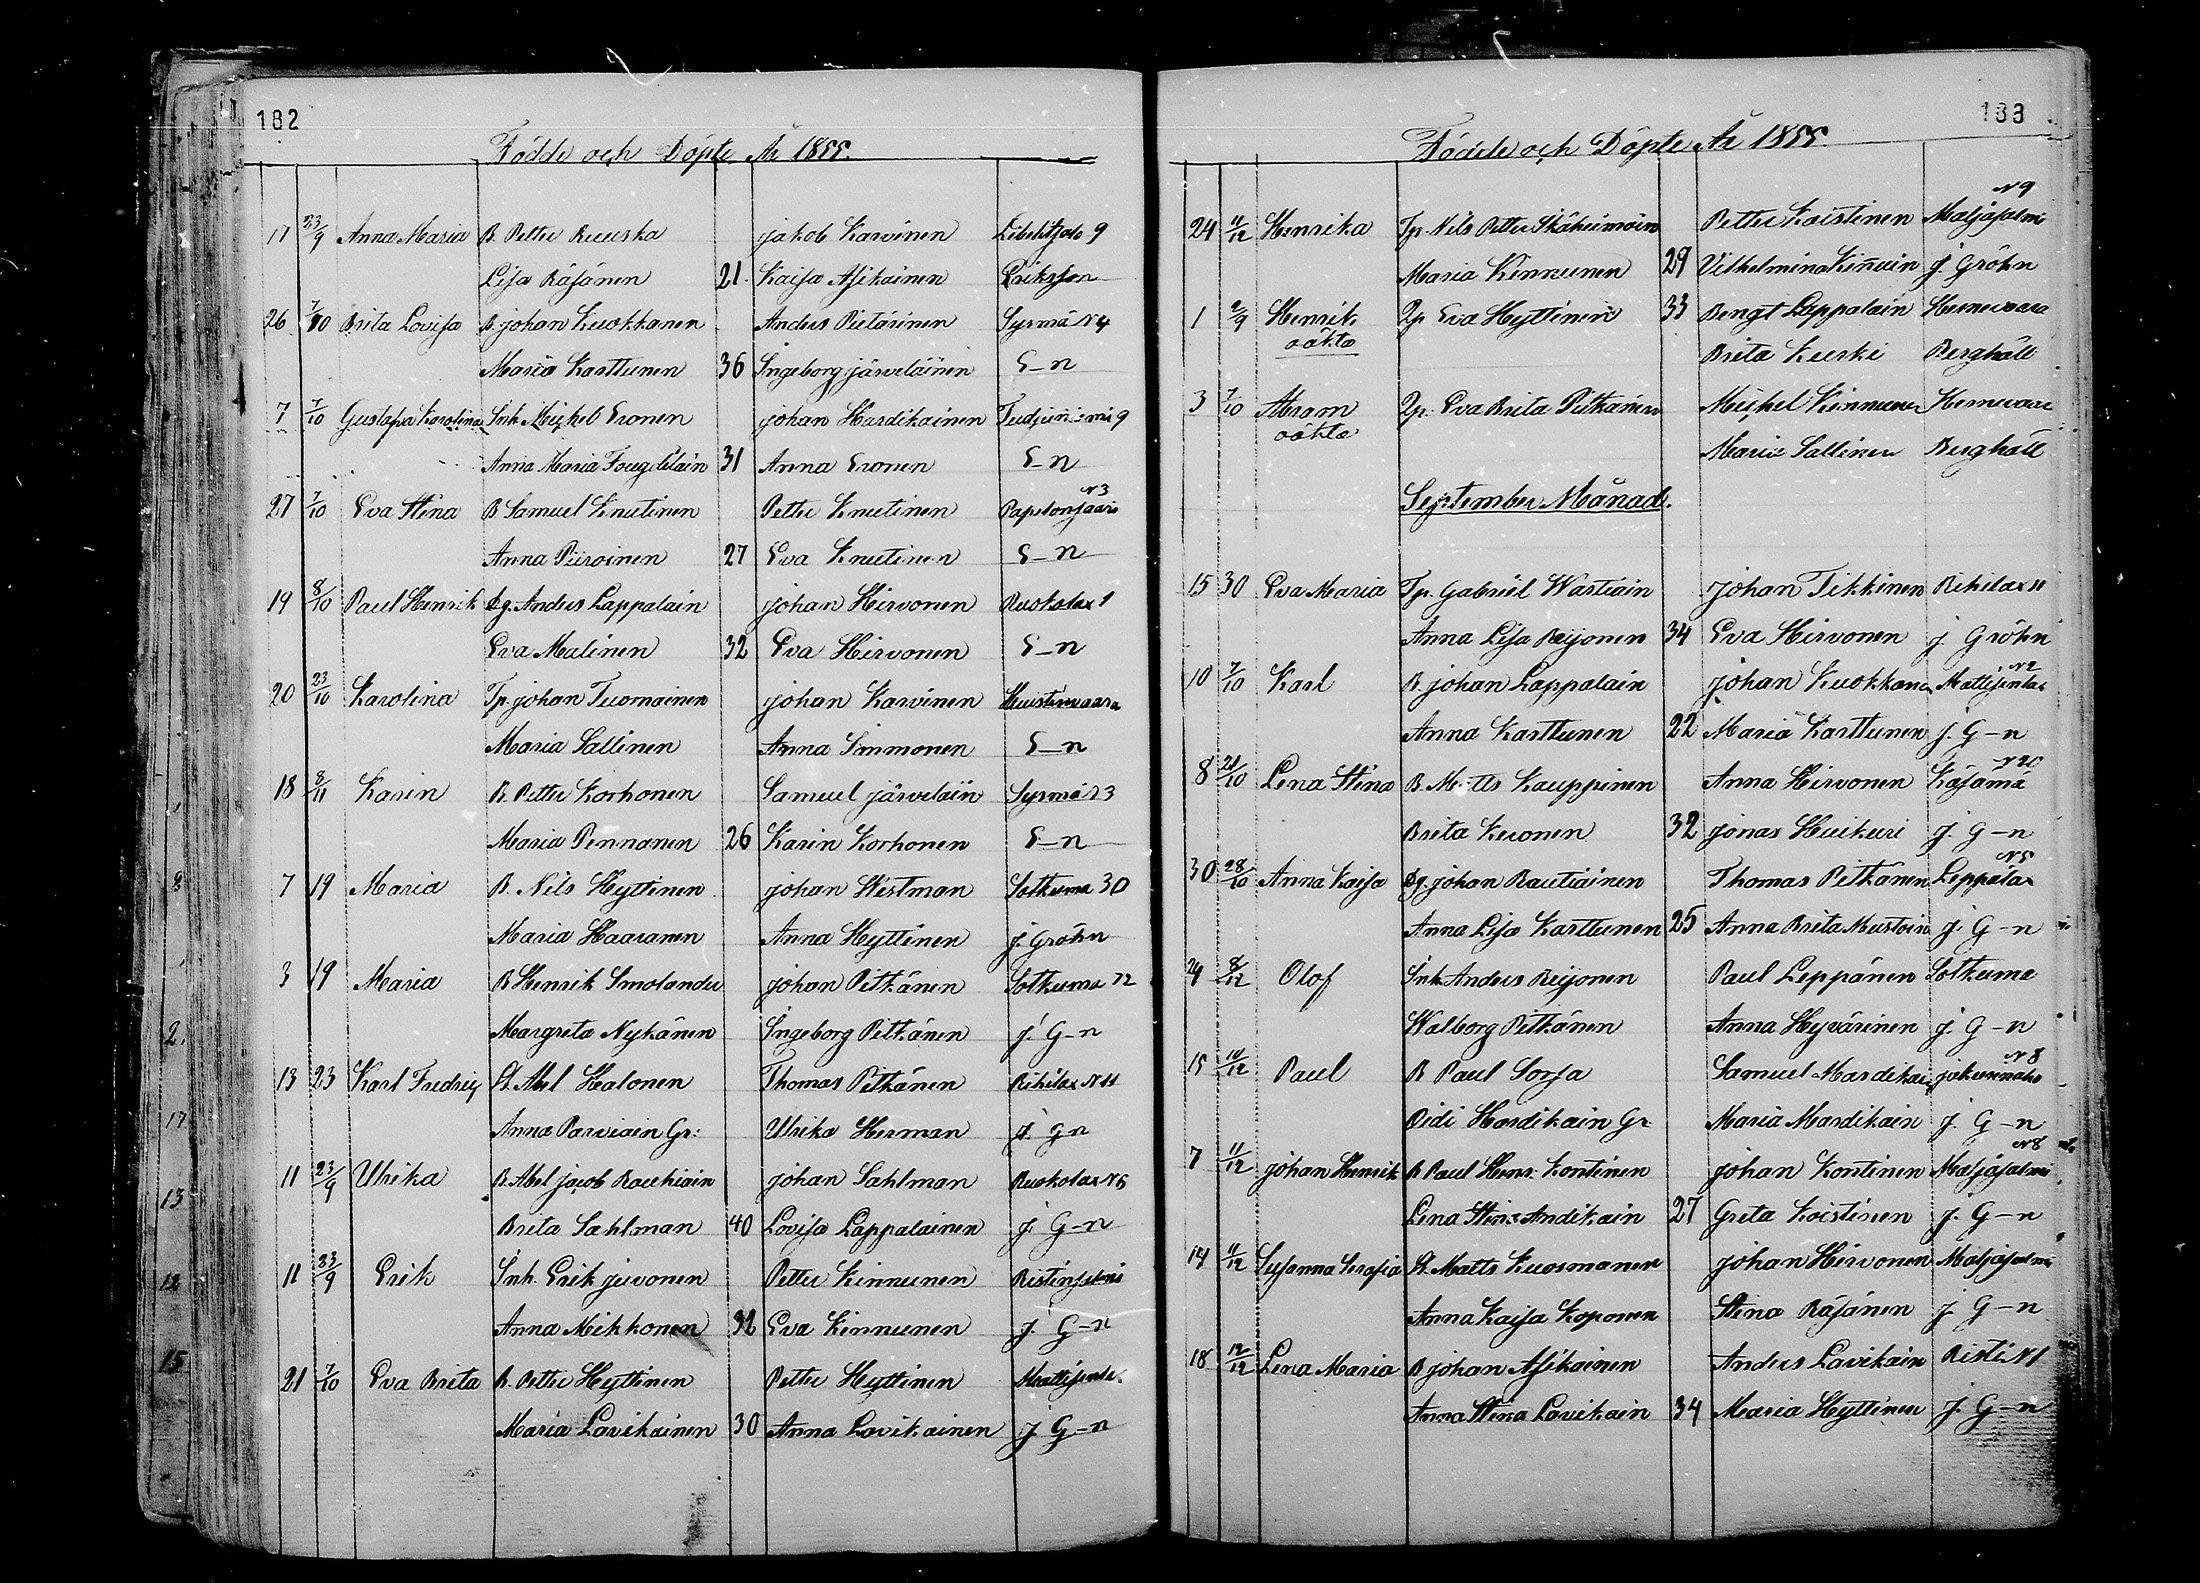 182
Födde och Döpte År 1855.
17 23/9 Anna Maria B. Petter Ruuska jakob Karvinen Libelitzols 9
Lisa Räsänen 21 Kaisa Asikainen Eriksson
26 7/10 Brita Lovisa B. johan Kuokkanen Anders Pietarinen Syrmä N 4
Maria Karttunen 36 Ingeborg järveläinen E-n
7 7/10 Gustafva Karolina Inh. Mickel Eronen johan Hardikainen 9
Anna Maria 31 Anna Eronen E-n
27 7/10 Eva Stina B Samuel Knutinen Petter Knutinen N3
Anna Piiroinen 27 Eva Knutinen E-n
19 8/10 Paul Henrik Anders Lappalain johan Hirvonen Ruokolax 1
Eva Malinen 32 Eva Hirvonen E-n
20 23/10 Karolina Tp. johan Tuomainen johan Karvinen Huistinvaara
Maria Sallinen Anna Simmonen E-n
18 8/11 Karin B. Petter Korhonen Samuel järveläin Syrmä 3
Maria Pennanen 26 Karin Korhonen E-n
7 19 Maria B. Nils Hyttinen johan Westman Sotkuma 30
Maria Haaranen Anna Hyttinen j. Gröhn
3 19 Maria B Henrik Smolander johan Pitkänen Sotkuma 12
Margreta Nykänen Ingeborg Pitkänen j. G-n
13 23 Karl Fredric St. Abel Halonen Thomas Pitkänen Rihilax N 11
Anna Parviain Gr: Ulrika Herman j. G-n
11 23/9 Ulrika B. Abel jacob Rouhiain johan Sahlman Ruokolax N 6
Brita Sahlman 40 Lovisa Lappalainen j. G-n
11 23/9 Erik Inh. Erik juvonen Petter Kinnunen Ristinsalmi
Anna Mikkonen 32 Eva Kinnunen j. G-n
21 7/10 Eva Brita B. Petter Hyttinen Petter Hyttinen
Maria Lavikainen 30 Anna Lavikainen j G-n
183
Födde och Döpte År 1855.
24 11/12 Henrika Tp. Nils Petter Petter Koistinen Maljasalmi N 9
Maria Kinnunen 29 Vilhelmina Kiñuin j. Gröhn
1 2/9 Henrik oäkta Qp. Eva Hyttinen 33 Bengt Lappalain Hernevaara
Brita Kuski Berghäll
3 7/10 Abram oäkta Qp. Eva Brita Pitkänen Mickel Kinnunen Hernevaara
Maria Sallinen Berghäll
September Månad.
15 30 Eva Maria Tp. Gabriel Wartiain johan Tikkinen Rihilax 11
Anna Lisa Reijonen 34 Eva Hirvonen j Gröhn
10 7/10 Karl B. johan Lappalain johan Kuokkanen N2
Anna Karttunen 22 Maria Karttunen j. G-n
8 21/10 Lena Stina B. Matts Kauppinen Anna Hirvonen Käsämä N 20
Brita Kuronen 32 jonas Huikuri j. G-n
30 28/10 Anna Kaisa johan Rautiainen Thomas Pitkänen Leppälax N 5
Anna Lisa Karttunen 25 Anna Brita Mustoin j. G-n
24 8/12 Olof Inh. Anders Reijonen Paul Leppänen Sotkuma
Walborg Pitkänen Anna Hyvärinen j. G-n
15 10/12 Paul B Paul Sorsa Samuel Mardikai N 8
Didi Hardikain Gr Maria Mardikain j. G-n
7 11/12 johan Henrik B Paul Henr. Kontinen johan Kontinen Maljasalmi N 8
Lena Stina Andikain 27 Greta Koistinen j. G-n
14 11/12 Susanna Serafia St. Matts Kuosmanen johan Hirvonen Maljasalmi
Anna Kaisa Koponen Stina Räsänen j G-n
18 12/12 Lena Maria B johan Asikainen Anders Lavikain Risti N 1
Anna Stina Lavikain 34 Maria Hyttinen j. G-n